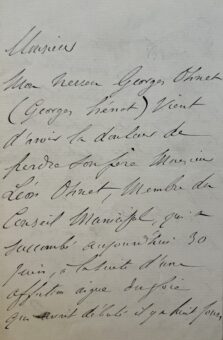 Monsieur
Mon neveu Georges Ohnet
(Georges Hénot) Vient
d'avoir la douleur de
perdre son père Monsieur
Léon Ohnet, Membre du
Conseil Municipal, qui a
succombé aujourd'hui 30
Juin, à la suite d'une
affection aigue du foie
qui avait débuté il y a huit jours